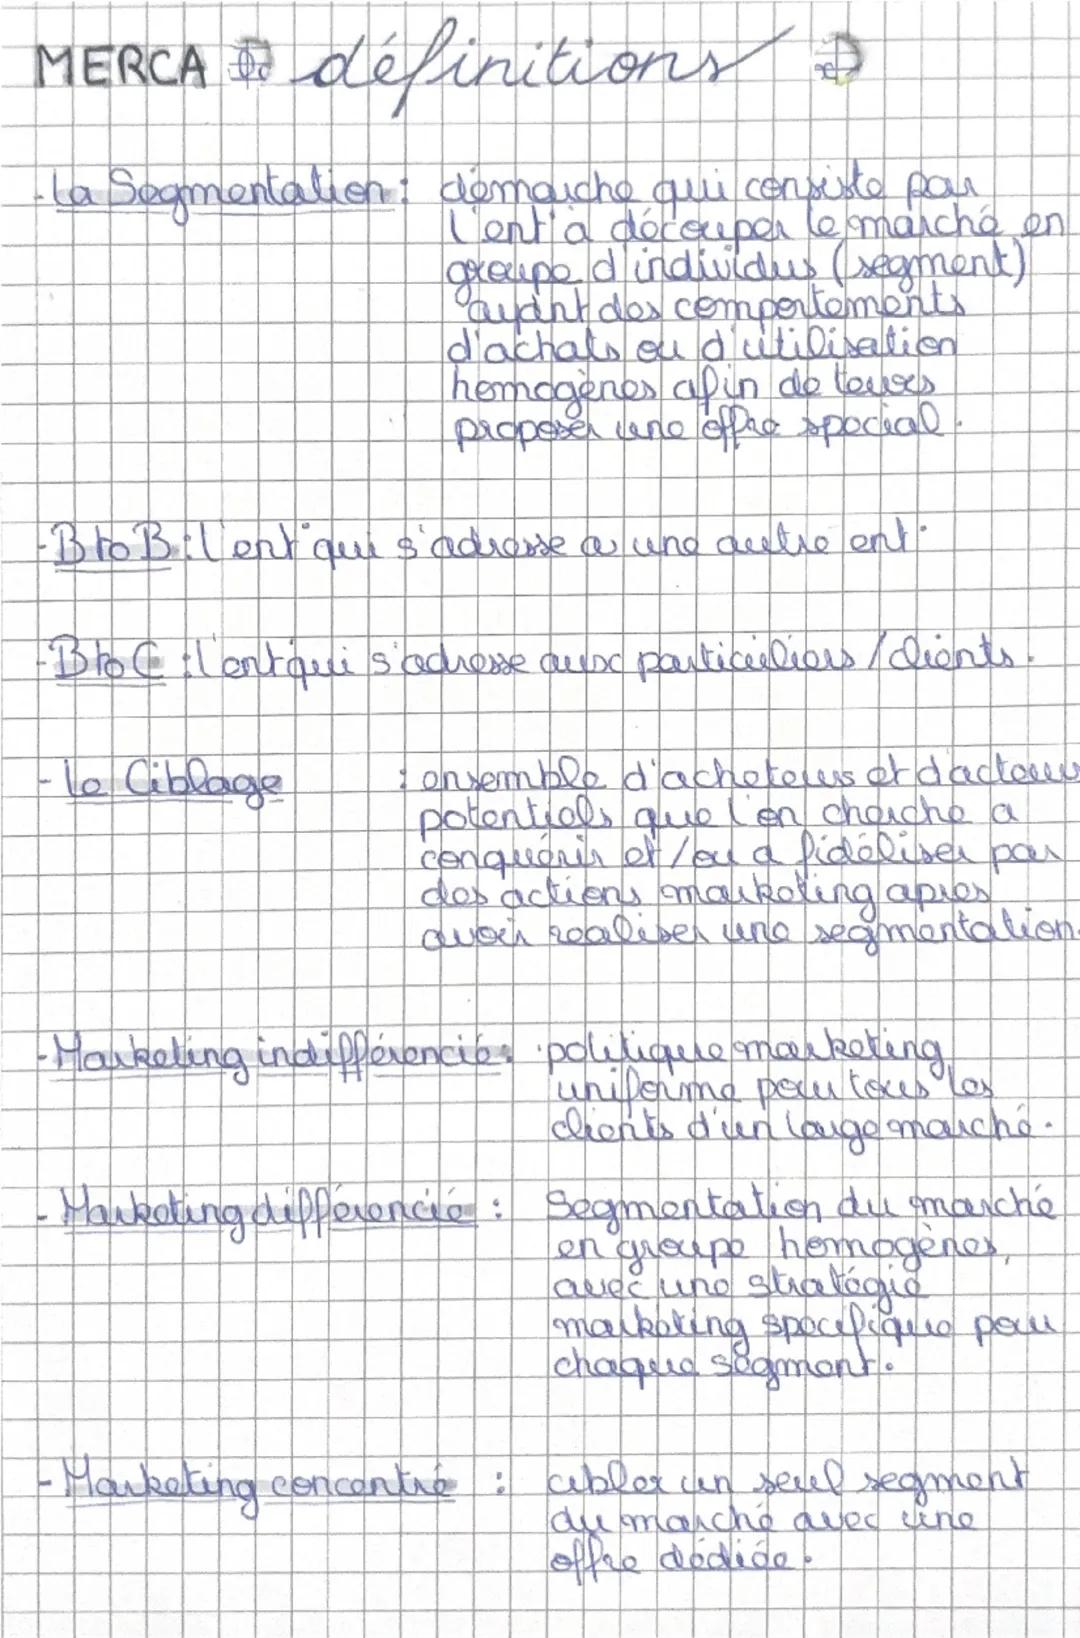 MERCA définitions
- La Segmentation : démarche qui consiste par
l'ent° à découper le marché en
groupe d'individus (segment)
ayant des comportements
d'achats ou d'utilisation
homogènes afin de leurs
proposer une offre special.
- B to B : l'ent° qui s'adresse a une autre ent°
- B to C : l'ent° qui s'adresse aux particuliers / clients.
- le Ciblage : ensemble d'acheteurs et d'acteurs
potentiels que l'on cherche a
conquérir et / ou a fidéliser par
des actions marketing apres
avoir realiser une segmentation.
- Marketing indifférencié : politique marketing
uniforme pour tous les
clients d'un large marché.
- Marketing différencié : Segmentation du marché
en groupe homogènes,
avec une stratégie
marketing specifique pour
chaque segment.
- Marketing concentré : cibler un seul segment
du marché avec une
offre dédiée.